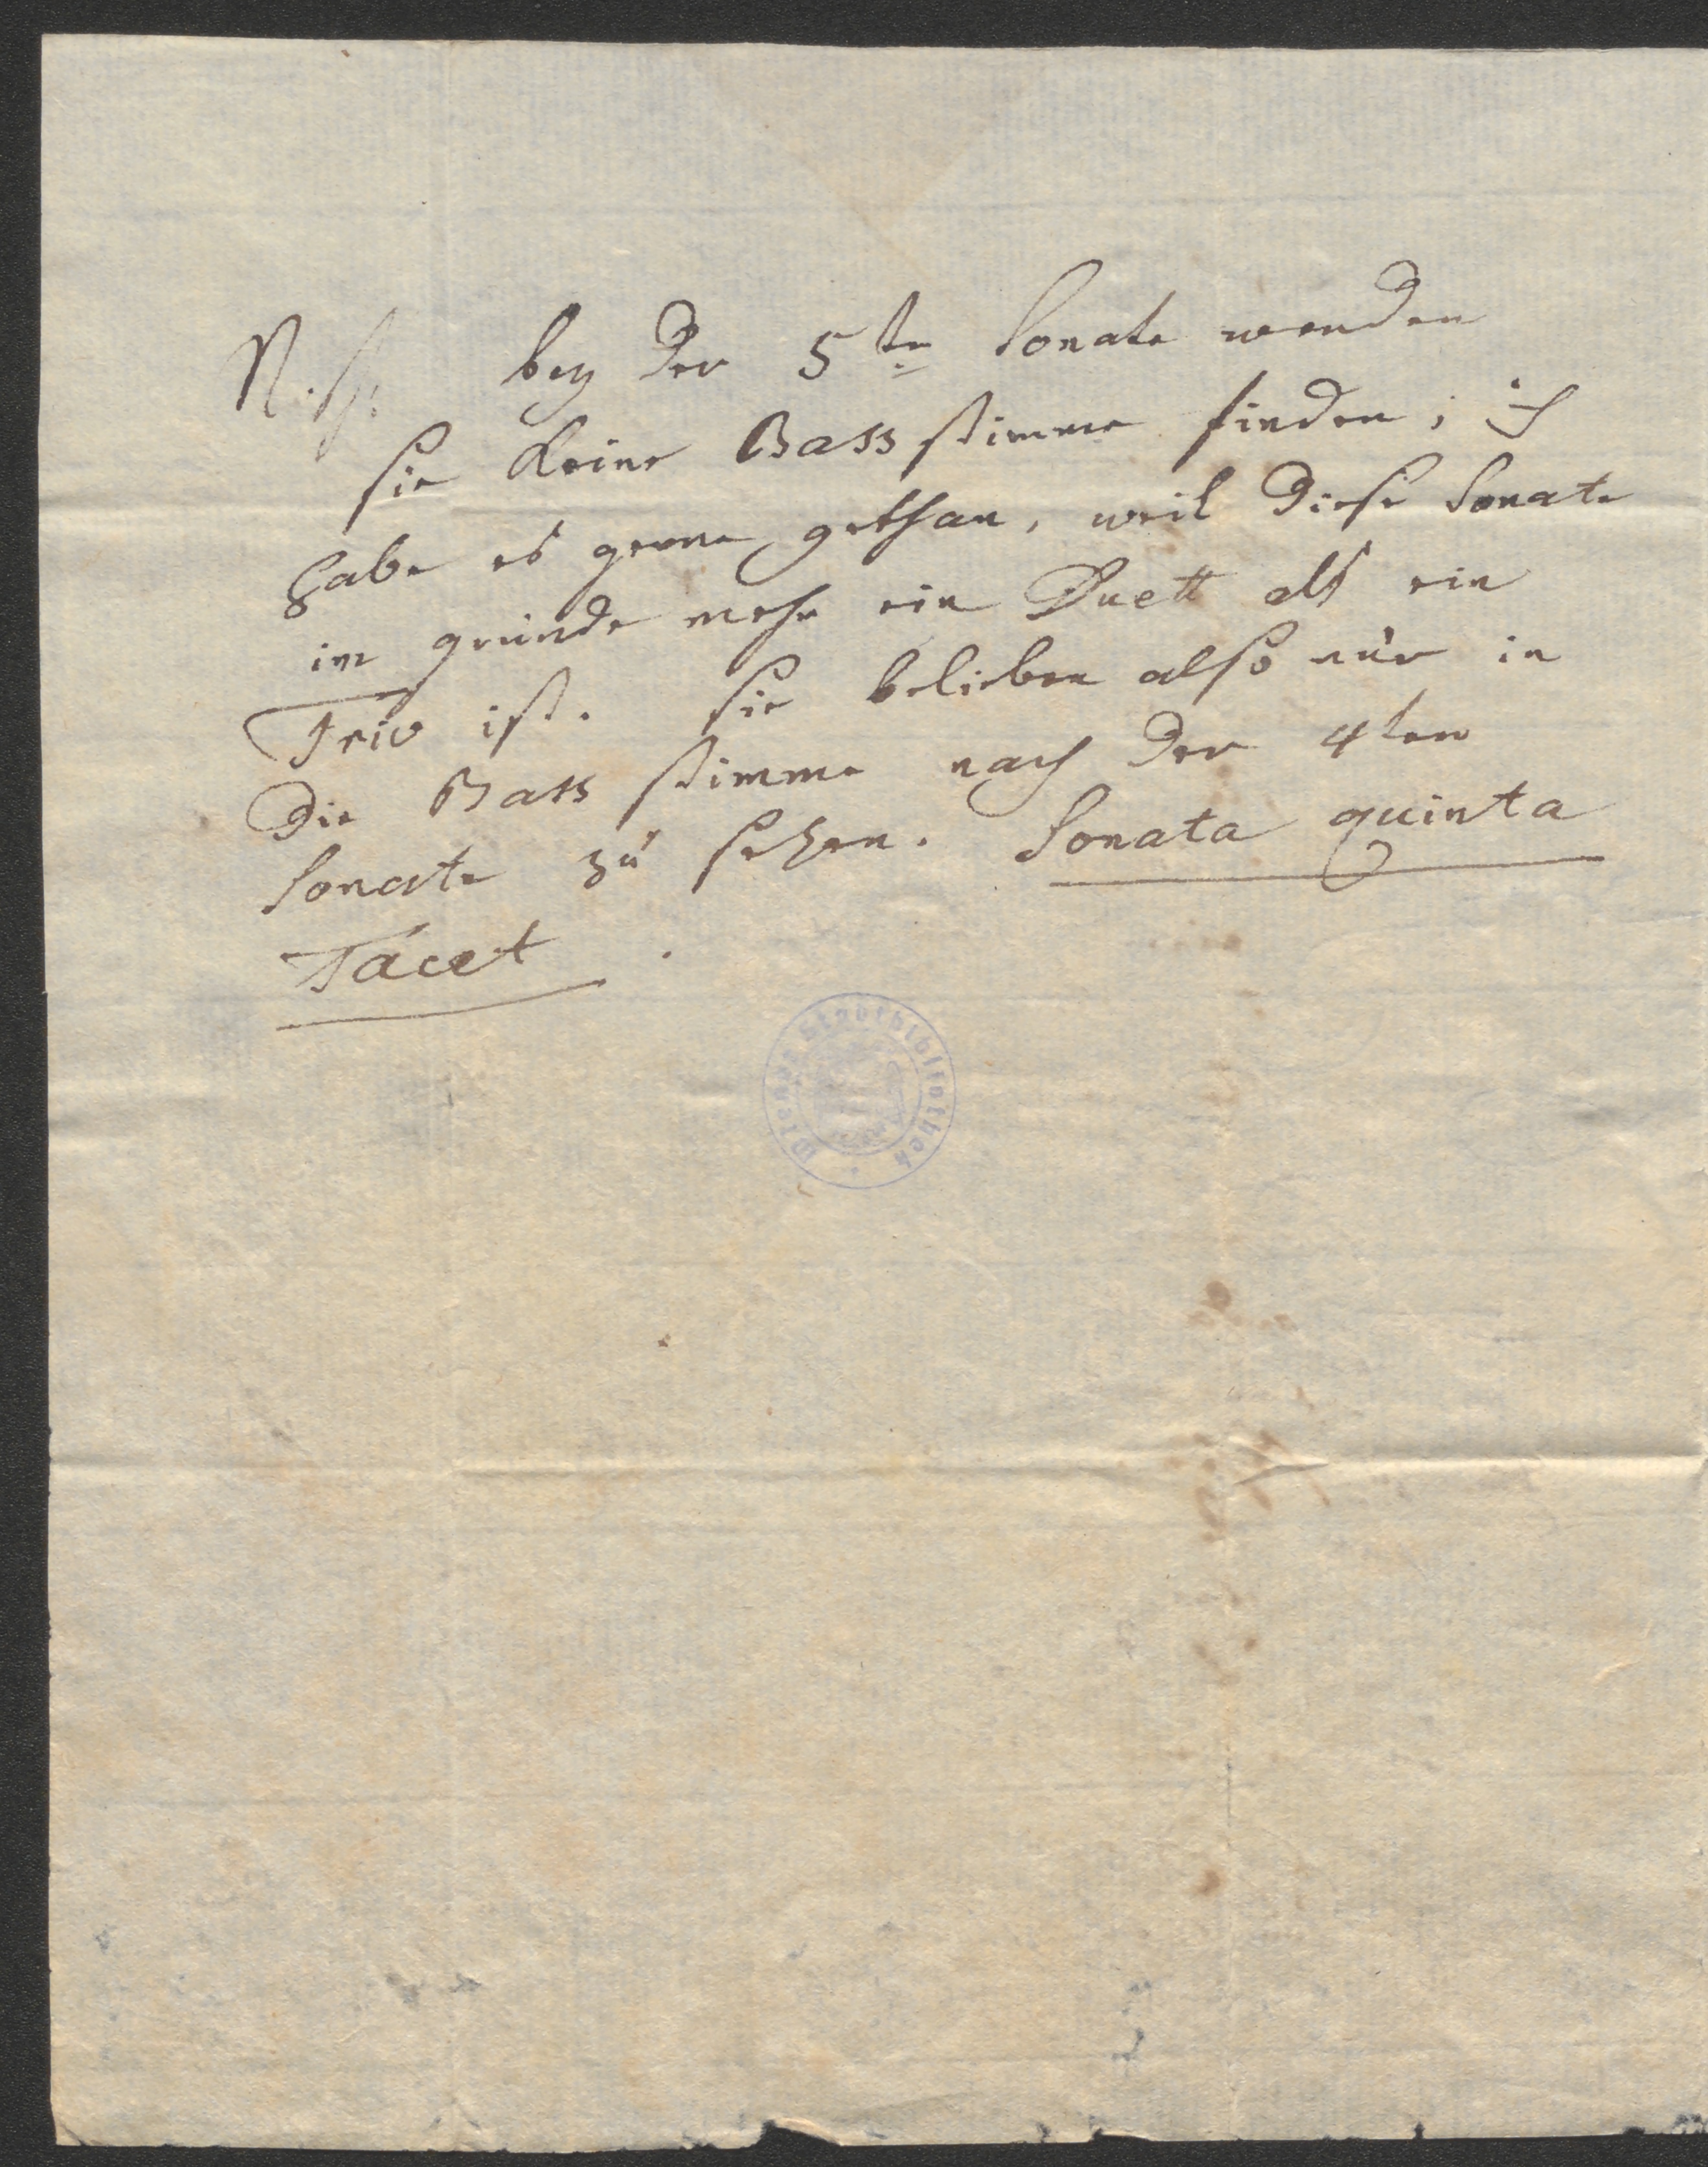 N.S. bey der 5ten Sonate werden
sie keine Bass stimme finden; ich
habe es gerne gethan, weil diese Sonate
im grunde mehr ein Duett als ein
Trio ist. sie belieben also nur in
die Bass stimme nach der 4ten
Sonate zu setzen. Sonata quinta
Tacet.
Wiener Stadtbibliothek